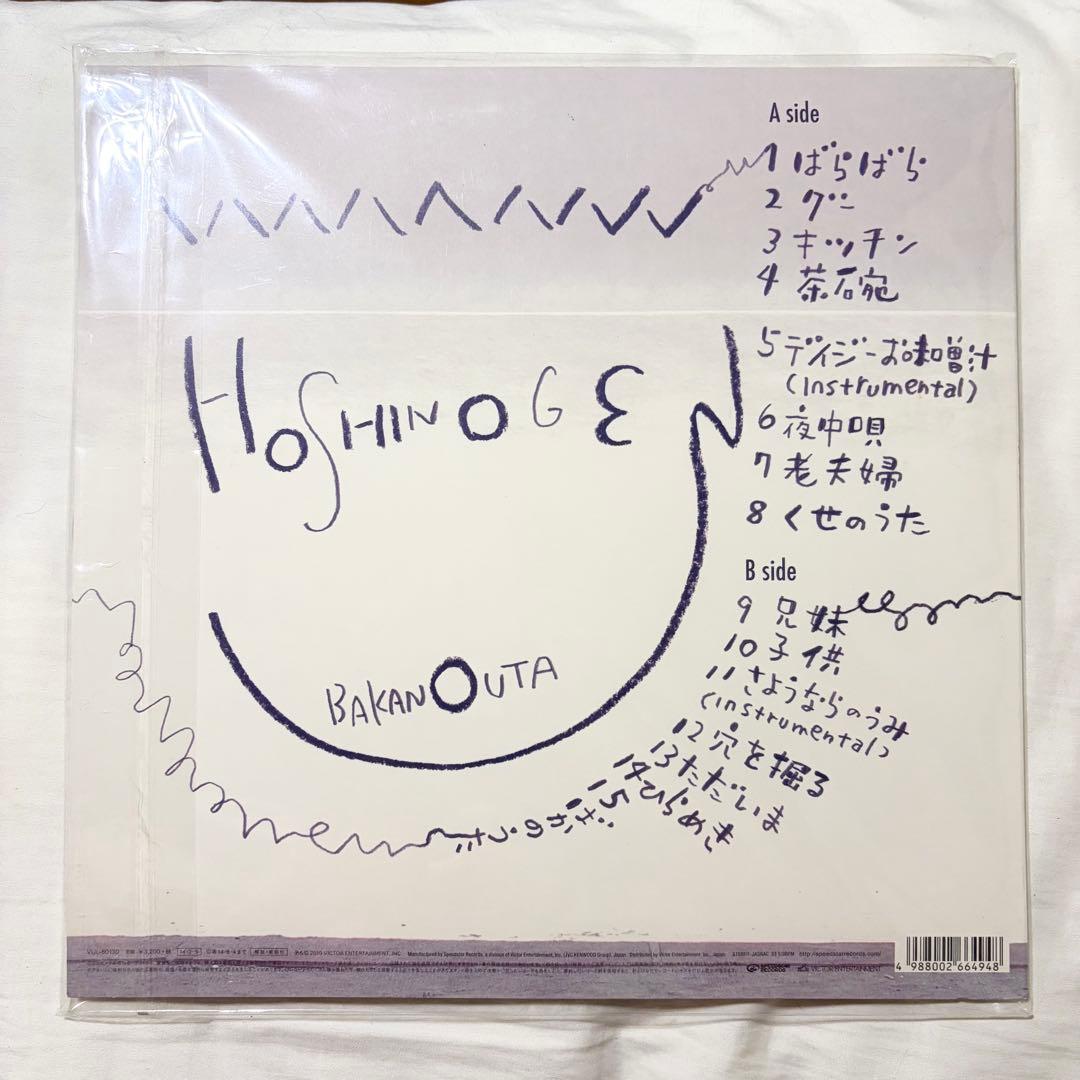 A side
1 ばらばら
2 グー
3 キッチン
4 茶碗
5 デイジーお味噌汁
(Instrumental)
6 夜中唄
7 老夫婦
8 くせのうた
B side
9 兄妹
10 子供
11 さようならのうみ
(Instrumental)
12 穴を掘る
13 ただいま
14 ひらめき
15 ばかのうた
HOSHINO GEN
BAKANOUTA
VIJL-60130
¥3,200+税
℗&© 2010 VICTOR ENTERTAINMENT, INC.
Manufactured by Speedstar Records, a division of Victor Entertainment, Inc. (JVCKENWOOD Group), Japan. Distributed by Victor Entertainment, Inc., Japan.
http://speedstarrecords.com/
VICTOR ENTERTAINMENT
4 988002 664948